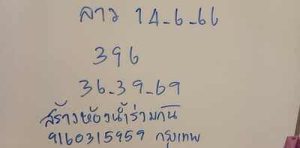 ลาว 14-6-66
396
36-39-69
สร้างห้องน้ำร่วมกัน
9160315959 กรุงเทพ